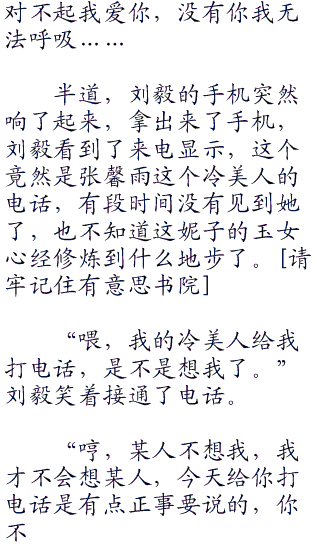 对不起我爱你，没有你我无
法呼吸……
半道，刘毅的手机突然
响了起来，拿出来了手机，
刘毅看到了来电显示，这个
竟然是张馨雨这个冷美人的
电话，有段时间没有见到她
了，也不知道这妮子的玉女
心经修炼到什么地步了。[请
牢记住有意思书院]
“喂，我的冷美人给我
打电话，是不是想我了。”
刘毅笑着接通了电话。
“哼，某人不想我，我
才不会想某人，今天给你打
电话是有点正事要说的，你
不